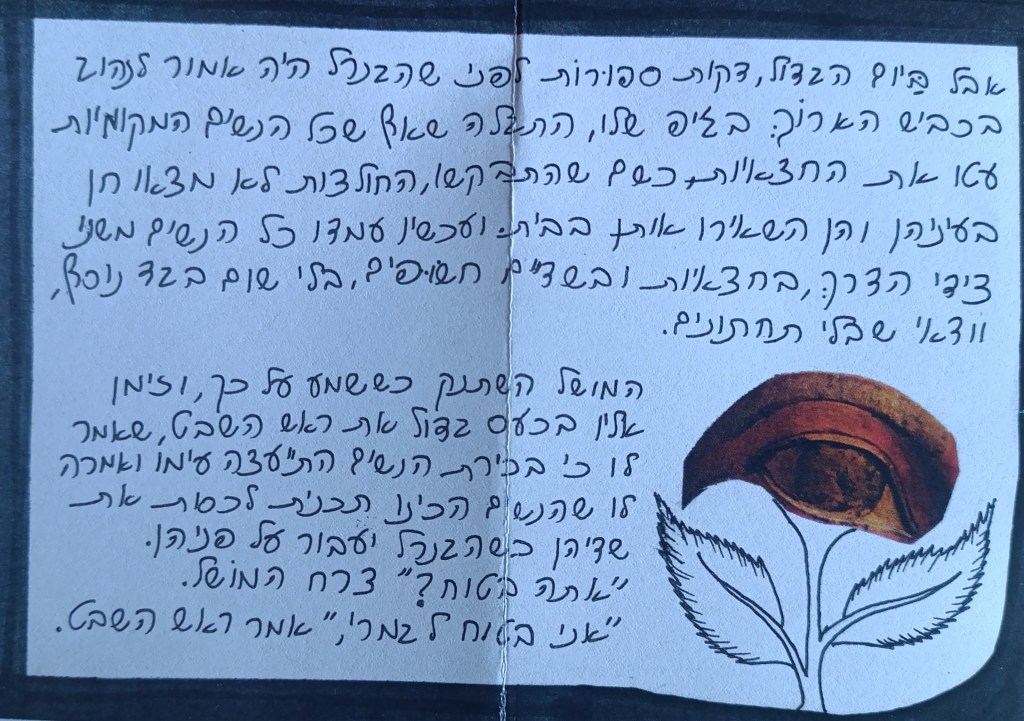 אבל ביום הגדול, דקות ספורות לפני שהגנרל היה אמור לנהוג
בכביש הארוך בג'יפ שלו, התגלה שאף שכל הנשים המקומיות
עטו את החצאיות כשם שהתבקשו, החולצות לא מצאו חן
בעיניהן והן השאירו אותן בבית. ועכשיו עמדו כל הנשים משני
צידי הדרך, בחצאיות ובשדיים חשופים, בלי שום בגד נוסף,
וודאי שבלי תחתונים.
המושל השתנק כששמע על כך, וזימן
אליו בכעס גדול את ראש השבט, שאמר
לו כי בכירת הנשים התייעצה עימו ואמרה
לו שהנשים הכינו תכנית לכסות את
שדיהן כשהגנרל יעבור על פניהן.
"אתה בטוח?" צרח המושל.
"אני בטוח לגמרי," אמר ראש השבט.